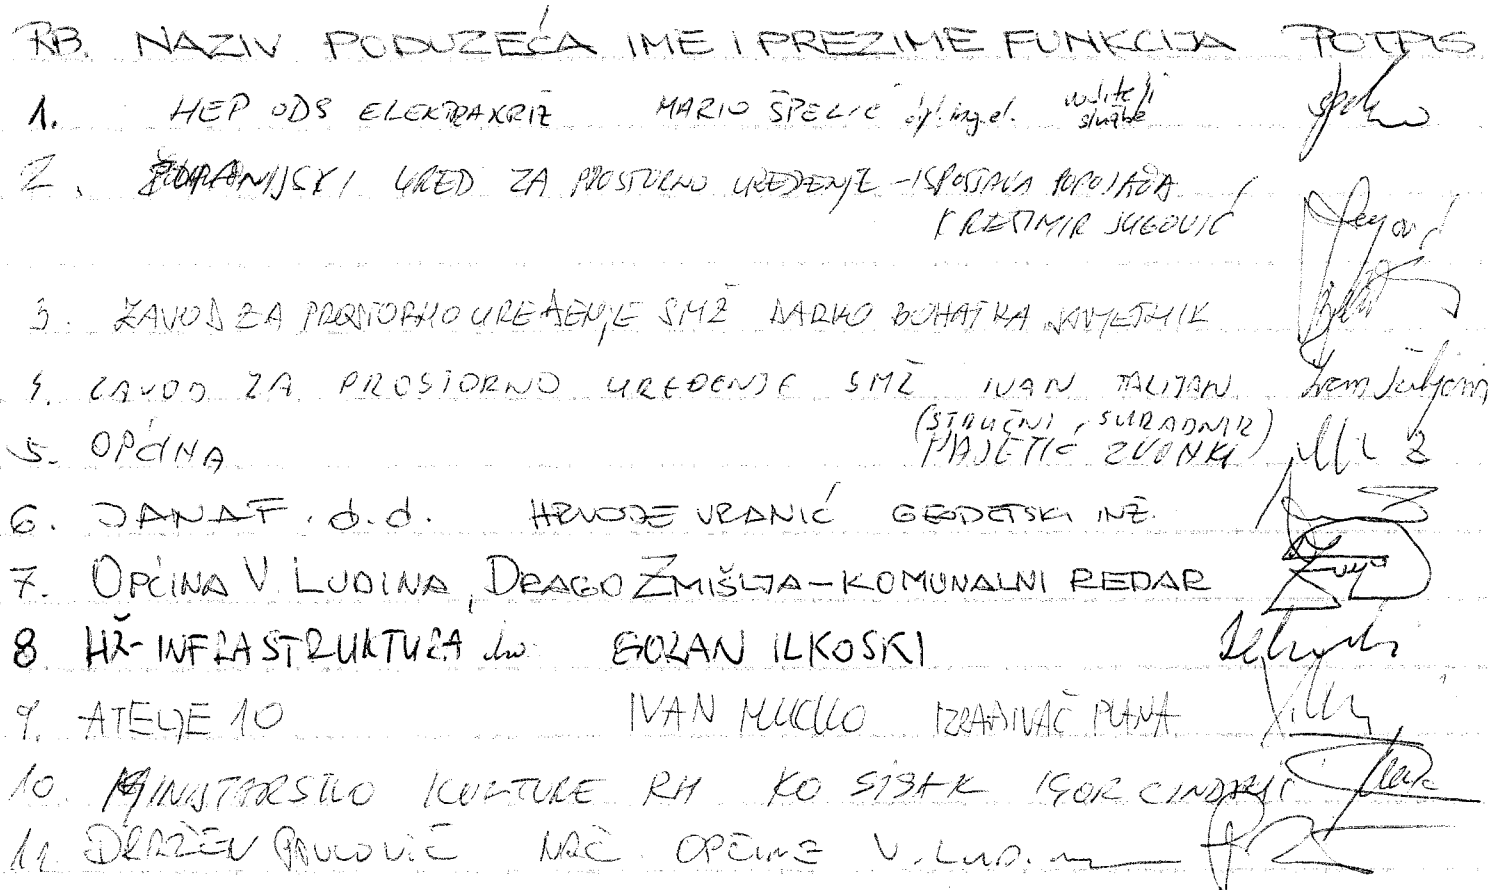 RB. NAZIV PODUZEĆA IME I PREZIME FUNKCIJA POTPIS
1. HEP ODS ELEKTRAKRIŽ MARIO ŠPELIĆ dipl.ing.el. voditelj službe
2. ŽUPANIJSKI URED ZA PROSTORNO UREĐENJE - ISPOSTAVA POPOVAČA
KREŠIMIR JUGOVIĆ
3. ZAVOD ZA PROSTORNO UREĐENJE SMŽ DARKO BOHATKA SAVJETNIK
4. ZAVOD ZA PROSTORNO UREĐENJE SMŽ IVAN TALIJAN
(STRUČNI SURADNIK)
5. OPĆINA MAJETIĆ ZVONKO
6. JANAF d.d. HRVOJE VRANIĆ GEODETSKI INŽ.
7. OPĆINA V. LUDINA, DRAGO ŽMIŠLJA - KOMUNALNI REDAR
8 HŽ-INFRASTRUKTURA GORAN ILKOSKI
9. ATELJE 10 IVAN MUCKO IZRAĐIVAČ PLANA
10. MINISTARSTVO KULTURE RH KO SISAK IGOR CINDRIĆ
11. DRAŽEN PAVLOVIĆ NAČ. OPĆINE V. LUD.